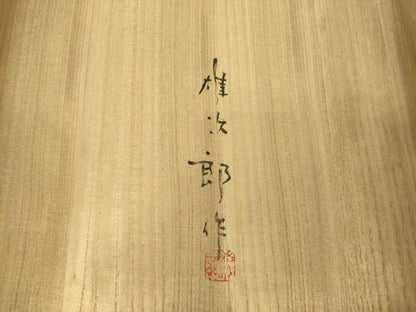 雄次郎作